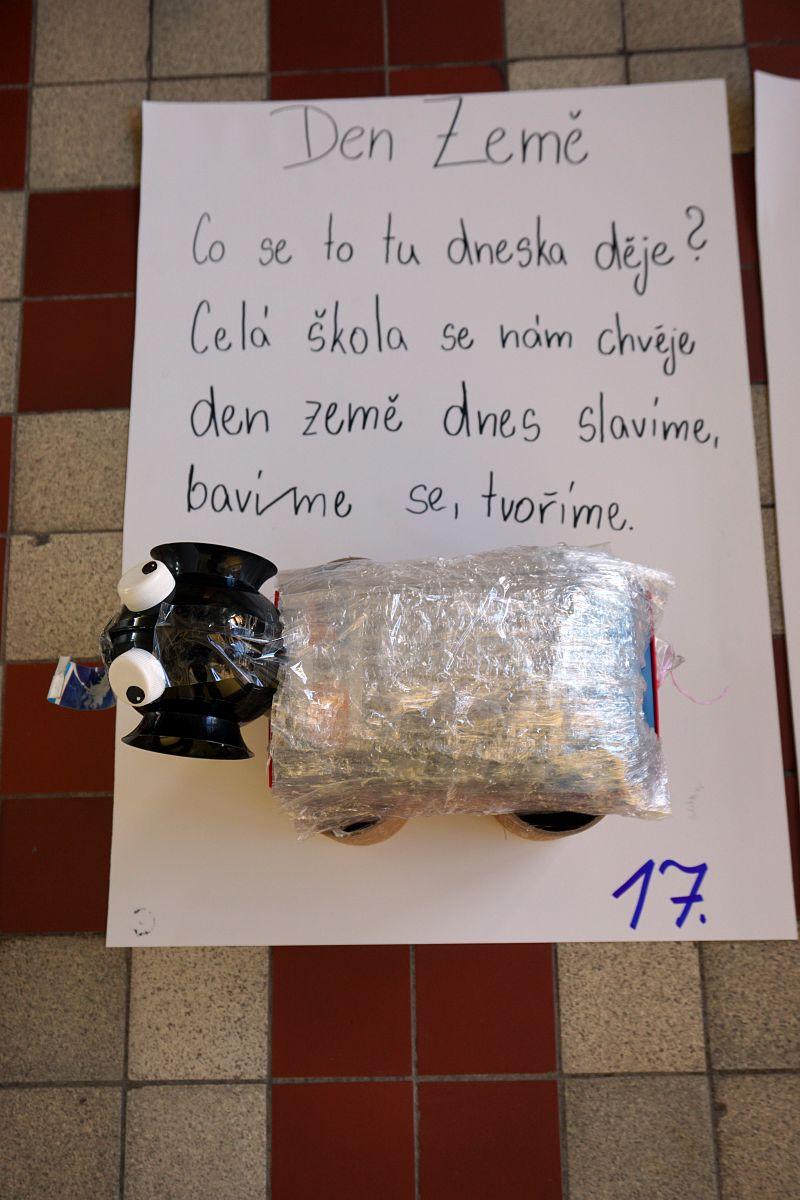 Den Země
Co se to tu dneska děje?
Celá škola se nám chvěje
den země dnes slavíme,
bavíme se, tvoříme.
17.